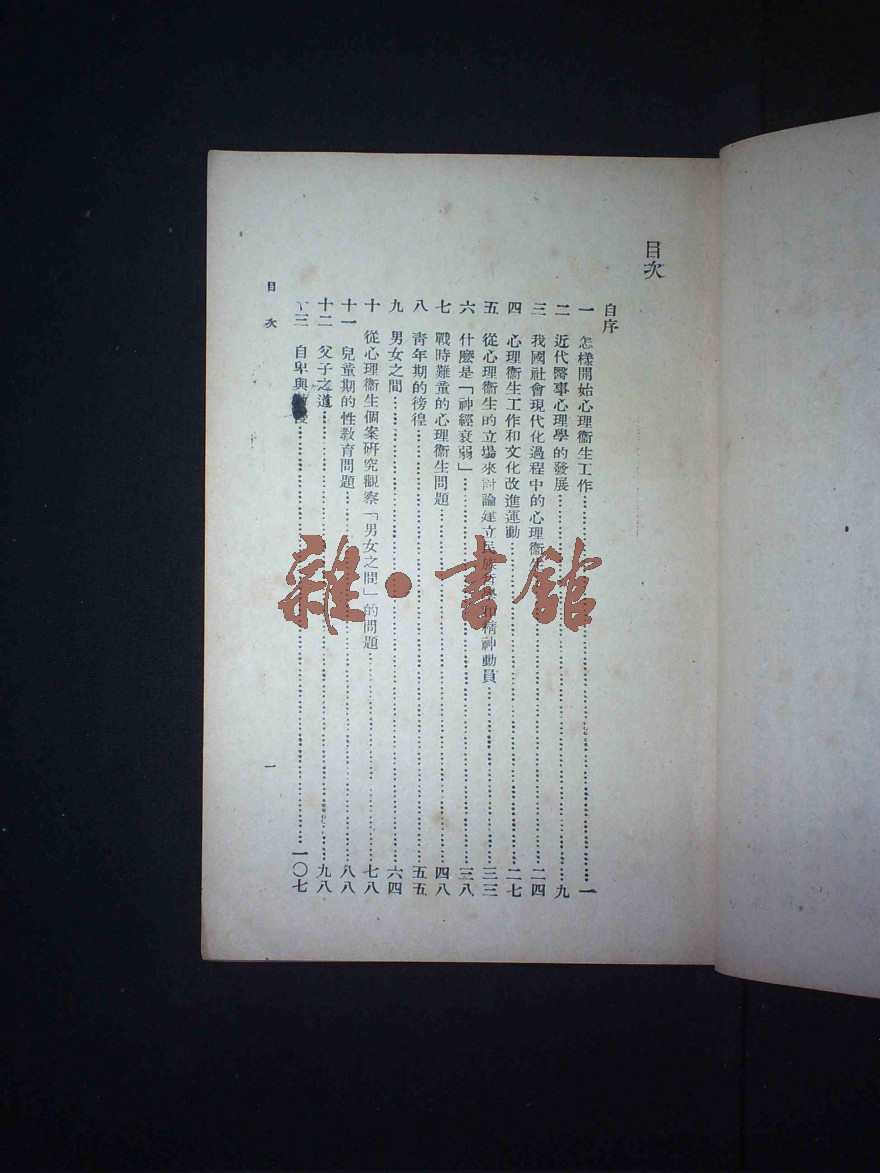 目次
自序
一 怎樣開始心理衞生工作……一
二 近代醫事心理學的發展……九
三 我國社會現代化過程中的心理衞生……二四
四 心理衞生工作和文化改進運動……二七
五 從心理衞生的立場來討論建立民族哲學和精神動員……三三
六 什麽是「神經衰弱」……三八
七 戰時難童的心理衞生問題……四八
八 靑年期的徬徨……五五
九 男女之間……六四
十 從心理衞生個案硏究觀察「男女之間」的問題……七八
十一 兒童期的性敎育問題……八八
十二 父子之道……九八
十三 自卑與……一〇七
目次
一
雜·書館